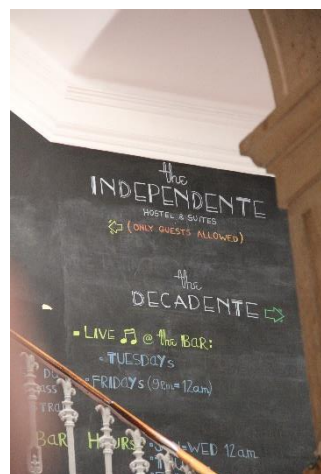 the
INDEPENDENTE
HOSTEL & SUITES
(ONLY GUESTS ALLOWED)
the
DECADENTE
LIVE @ the BAR:
TUESDAYS
FRIDAYS (9PM-12am)
BAR HOURS
WED 12am